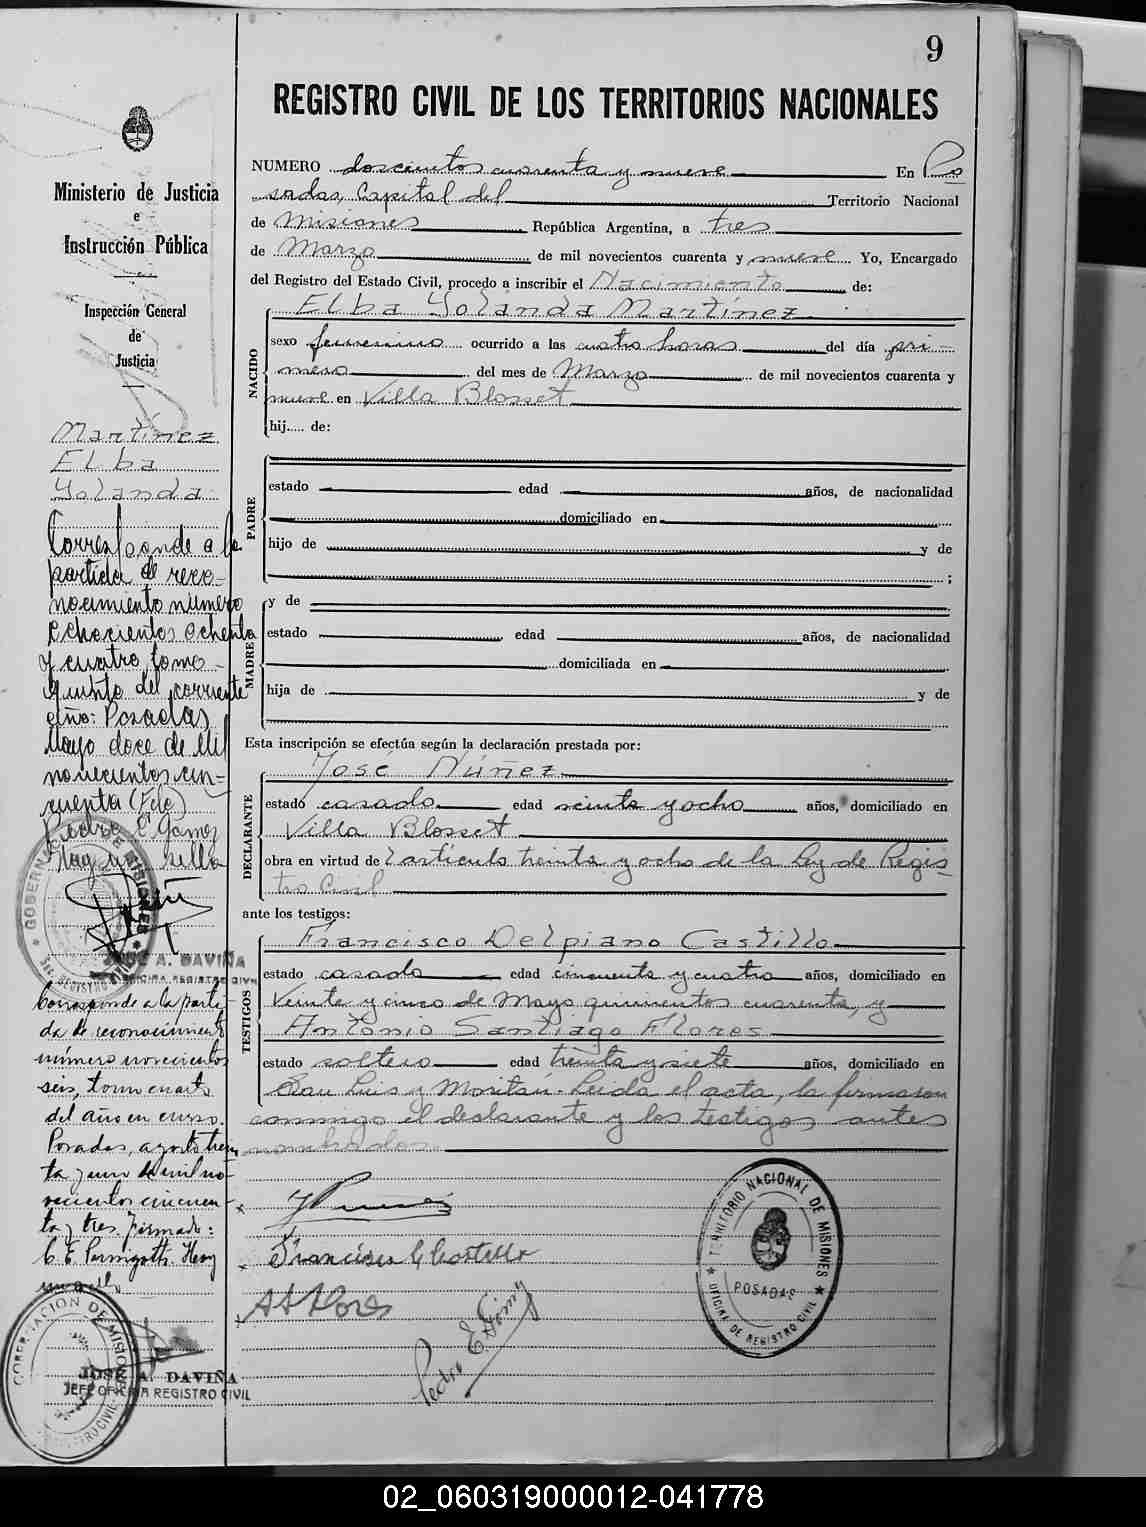 9
REGISTRO CIVIL DE LOS TERRITORIOS NACIONALES
NUMERO doscientos cuarenta y nueve En Po
sadas, Capital del Territorio Nacional
de Misiones República Argentina, a tres
de Marzo de mil novecientos cuarenta y nueve Yo, Encargado
del Registro del Estado Civil, procedo a inscribir el Nacimiento de:
Elba Yolanda Martínez
NACIDO
sexo femenino ocurrido a las cuatro horas del día pri-
mero del mes de Marzo de mil novecientos cuarenta y
nueve en Villa Blosset
hij..... de:
PADRE
estado edad años, de nacionalidad
domiciliado en
hijo de y de
;
MADRE
y de
estado edad años, de nacionalidad
domiciliada en
hija de y de
Esta inscripción se efectúa según la declaración prestada por:
DECLARANTE
José Núñez
estado casado edad veinte y ocho años, domiciliado en
Villa Blosset
obra en virtud del artículo treinta y ocho de la Ley de Regis-
tro Civil
ante los testigos:
TESTIGOS
Francisco Delpiano Castillo
estado casado edad cincuenta y cuatro años, domiciliado en
Veinte y cinco de Mayo quinientos cuarenta, y
Antonio Santiago Flores
estado soltero edad treinta y siete años, domiciliado en
San Luis y Moritán. Leída el acta, la firmaron
conmigo el declarante y los testigos antes
nombrados.
Francisco C Castillo
A S Flores
Pedro E Gómez
TERRITORIO NACIONAL DE MISIONES
POSADAS
OFICINA DE REGISTRO CIVIL
Ministerio de Justicia
e
Instrucción Pública
Inspección General
de
Justicia
Martínez
Elba
Yolanda
Corresponde a la
partida de reco-
nocimiento número
ochocientos ochenta
y cuatro, tomo
quinto del corriente
año: Posadas,
Mayo doce de mil
novecientos cin-
cuenta (Fdo)
Pedro E. Gómez
Hay un sello
GOBERNACION DE MISIONES
JOSE A. DAVIÑA
Corresponde a la parti-
da de reconocimiento
número novecientos
seis, tomo cuarto
del año en curso.
Posadas, agosto trein
ta y uno de mil no-
vecientos cincuen-
ta y tres. firmado:
C. E. Hay
un sello
GOBERNACION DE MISIONES
JOSE A. DAVIÑA
JEFE OFICINA REGISTRO CIVIL
02_060319000012-041778